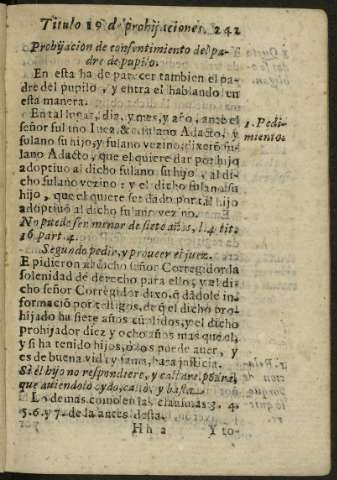 Titulo 19 de prohijaciones. 242
Prohijacion de consentimiento del pa-
dre de pupilo.
En esta ha de parecer tambien el pa-
dre del pupilo, y entra el hablando en
esta manera.
En tal lugar, dia, y mes, y año, ante el
señor fulano Iuez, &c. fulano Adacto, y
fulano su hijo, y fulano vezino, dixero fu-
lano Adacto, que el quiere dar por hijo
adoptiuo al dicho fulano su hijo, al di-
cho fulano vezino: y el dicho fulano su
hijo, que el quiere ser dado por tal hijo
adoptiuo al dicho fulano vezino.
No puede ser menor de siete años, l. 4. tit.
16. part. 4.
Segundo pedir, y proueer el juez.
E pidieron al dicho señor Corregidor la
solenidad de derecho para ello; y el di-
cho señor Corregidor dixo, q̃ dãdole in-
formaciõ por testigos, de q̃ el dicho pro-
hijado ha siete años cũplidos, y el dicho
prohijador diez y ocho años mas que el,
y si ha tenido hijos, o los puede auer, y
es de buena vida y fama, hara justicia.
Si el hijo no respondiere, y callare, podra,
que auiendolo oydo, callò, y basta.
Lo demas como en las clausulas 3. 4.
5. 6. y 7. de la antes desta.
Hh 2 Y to-
1. Pedi-
miento.